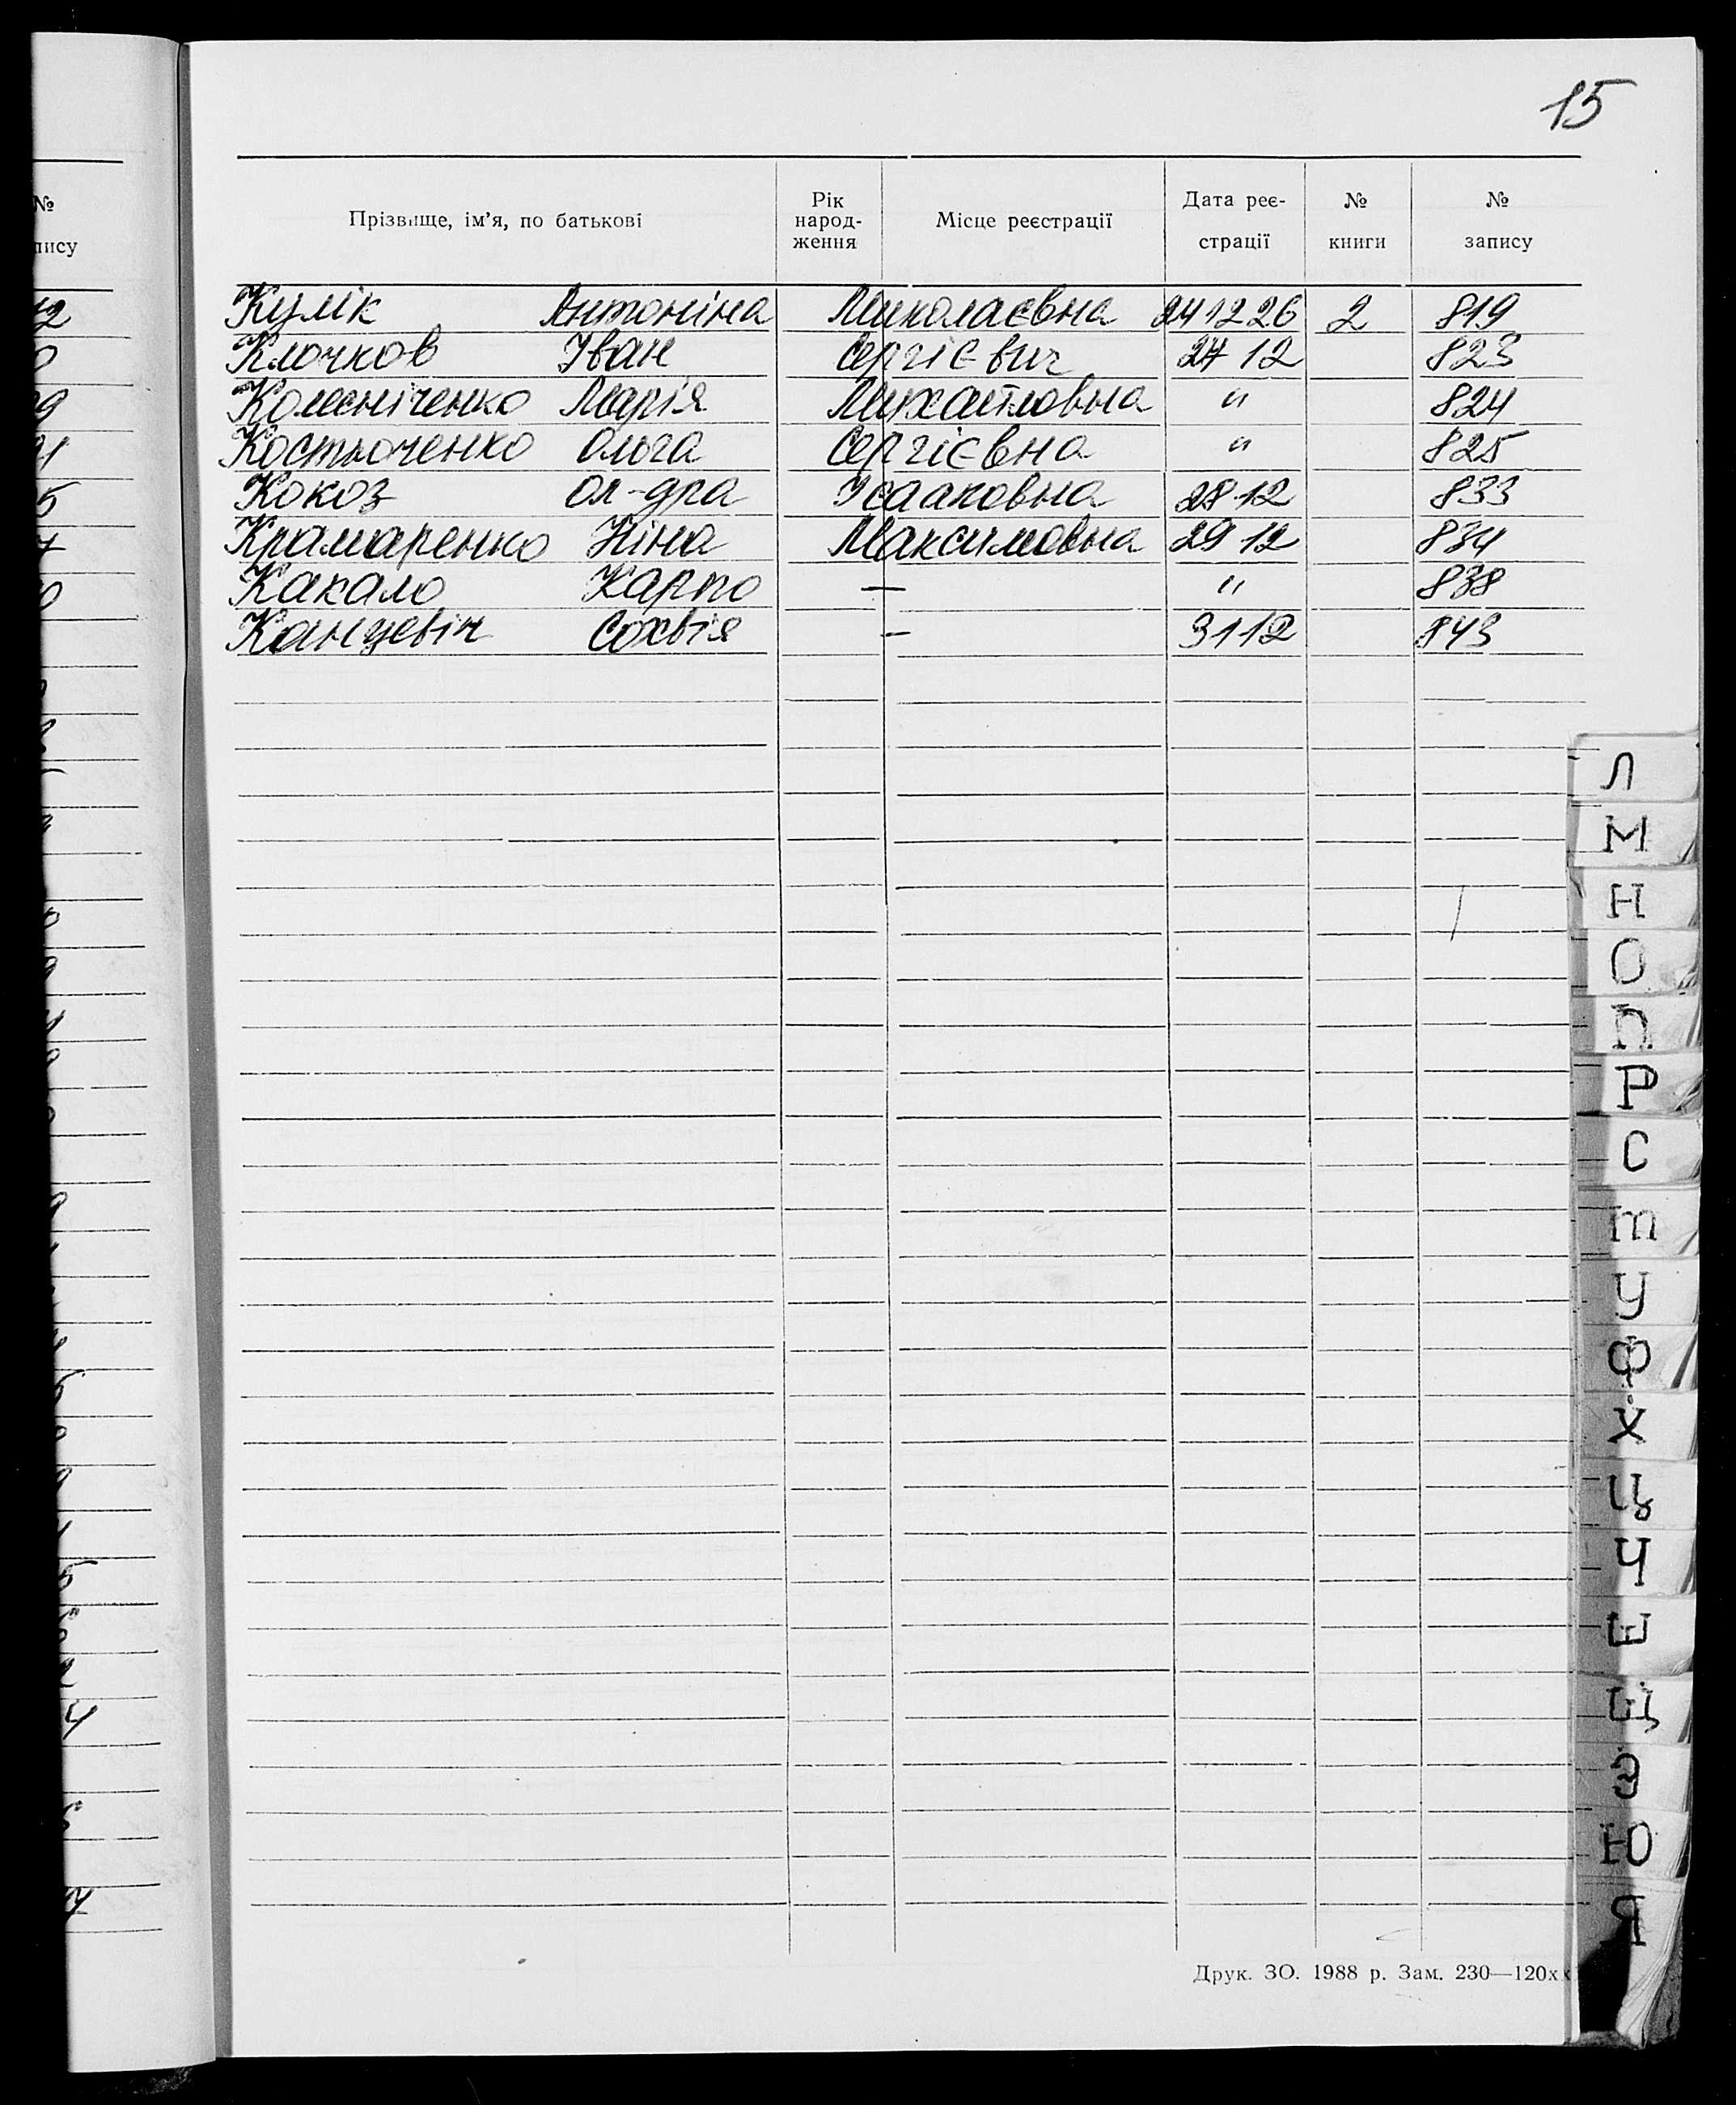 15
№
пису
Прізвище, ім'я, по батькові Рік народ-ження Місце реєстрації Дата реє-страції № книги № запису
Кулік Антоніна Миколаєвна 24 12 26 2 819
Клочков Іван Сергієвич 27 12 823
Колесніченко Марія Михайловна " 824
Костюченко Ольга Сергієвна " 825
Кокоз Ол-дра Ісааковна 28 12 833
Крамаренко Ніна Максимовна 29 12 834
Какало Карпо — " 838
Канцевіч Сохвія — 31 12 843
Л
М
Н
О
П
Р
С
т
У
Ф
Х
Ц
Ч
Ш
Щ
Э
Ю
Я
Друк. ЗО. 1988 р. Зам. 230—120х